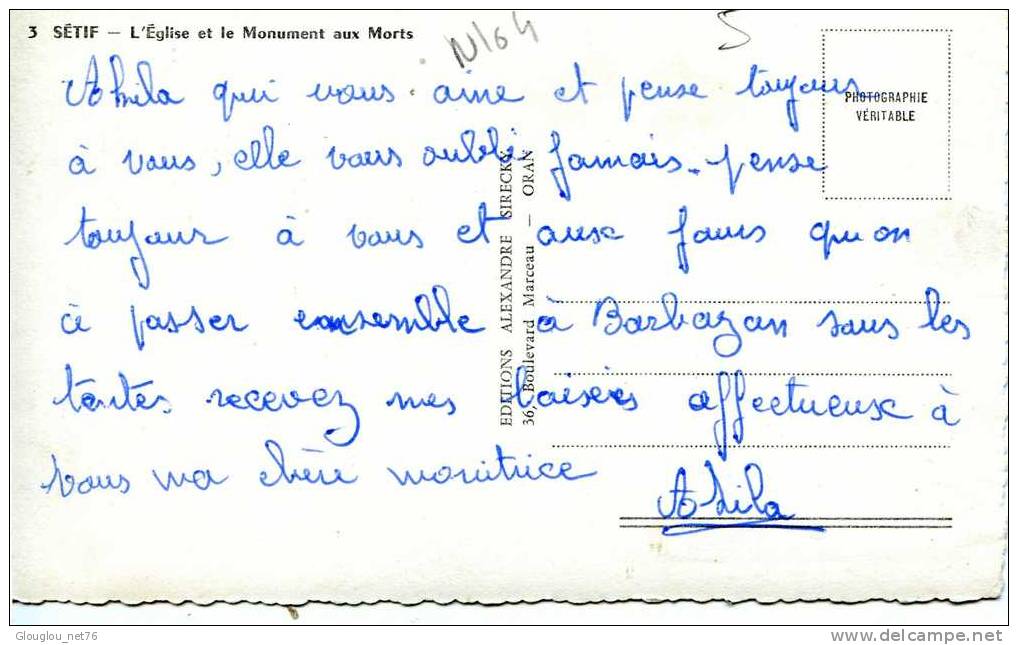 3 SÉTIF — L'Église et le Monument aux Morts
N/64
5
PHOTOGRAPHIE
VÉRITABLE
Akila qui vous aime et pense toujours
à vous, elle vous oubli jamais. pense
toujour à vous et aux jours qu on
à passer ensemble à Barbazan sous les
tentes. recevez mes baisers affectueux à
vous ma chère monitrice
Akila
EDITIONS ALEXANDRE SIRECKY
36, Boulevard Marceau — ORAN
Glouglou_net76
delcampe.net